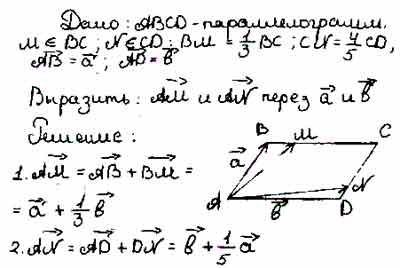 Дано: ABCD - параллелограмм.
M ∈ BC; N ∈ CD; BM = 1/3 BC; CN = 4/5 CD,
AB⃗ = a⃗; AD⃗ = b⃗
Выразить: AM⃗ и AN⃗ через a⃗ и b⃗
Решение:
1. AM⃗ = AB⃗ + BM⃗ =
= a⃗ + 1/3 b⃗
2. AN⃗ = AD⃗ + DN⃗ = b⃗ + 1/5 a⃗
B M C
a⃗
A N
b⃗ D